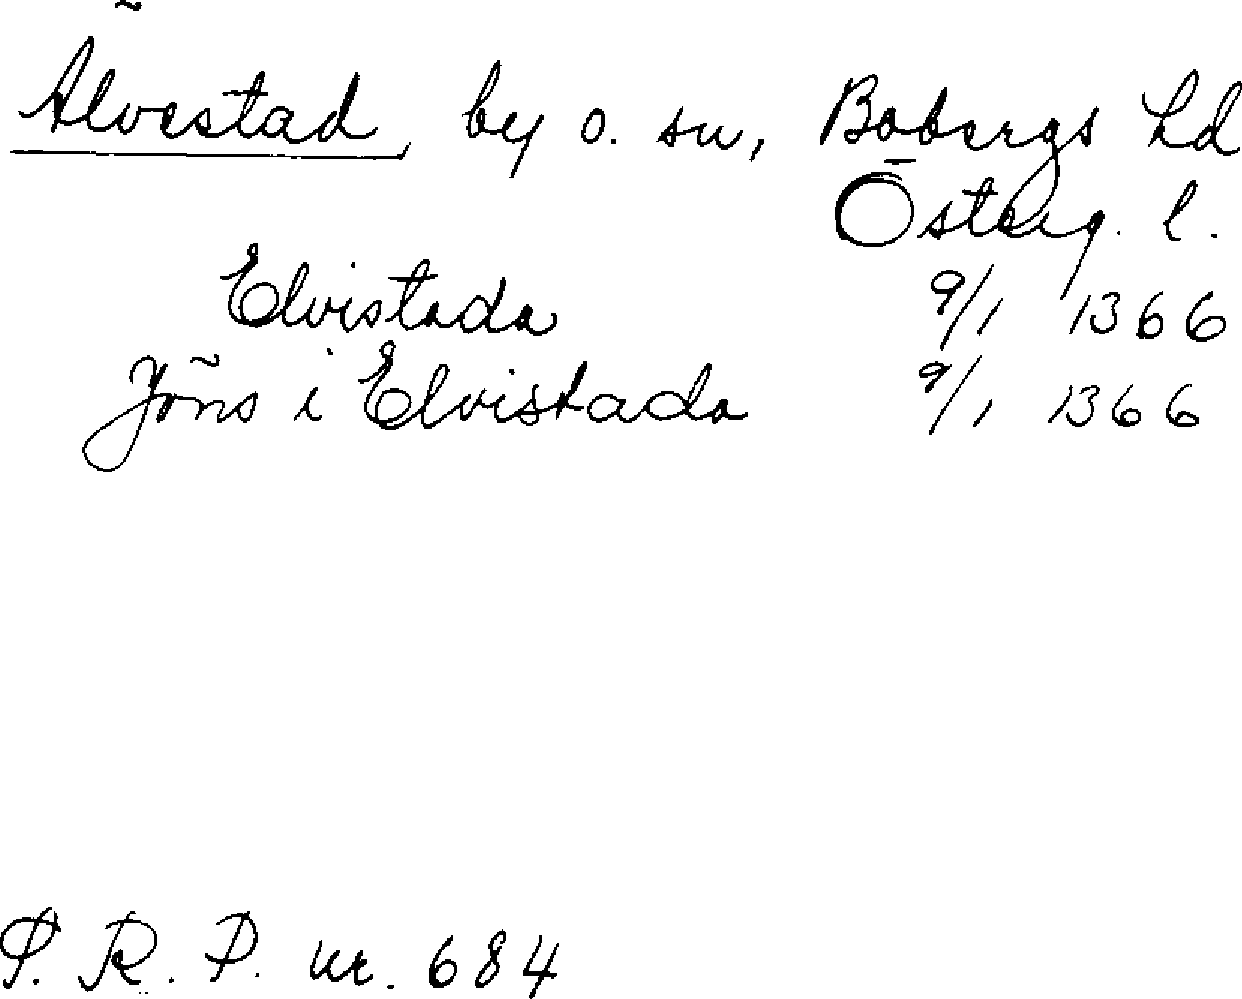 Älvestad, by o. sn, Bobergs hd
Österg. l.
Elvistada 9/1 1366
Jöns i Elvistada 9/1 1366
S. R. P. nr. 684